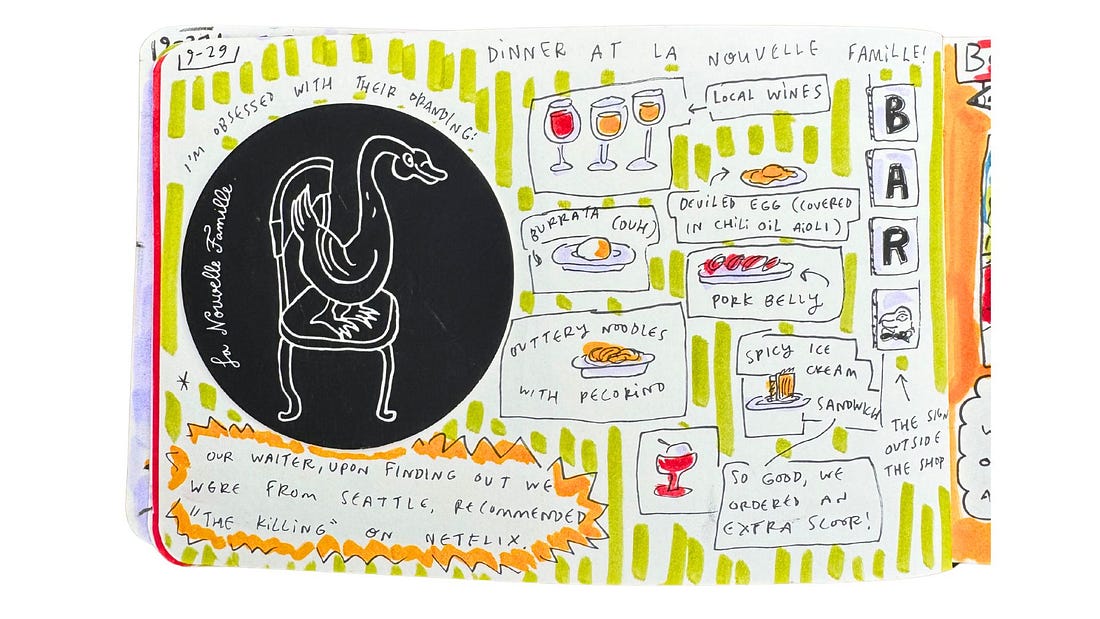 9-29
DINNER AT LA NOUVELLE FAMILLE!
I'M OBSESSED WITH THEIR BRANDING!
La Nouvelle Famille
LOCAL WINES
DEVILED EGG (COVERED
IN CHILI OIL AIOLI)
BURRATA
(DUH)
PORK BELLY
BUTTERY NOODLES
WITH PECORINO
SPICY ICE
CREAM
SANDWICH
SO GOOD, WE
ORDERED AN
EXTRA SCOOP!
B
A
R
THE SIGN
OUTSIDE
THE SHOP
*
OUR WAITER, UPON FINDING OUT WE
WERE FROM SEATTLE, RECOMMENDED
"THE KILLING" ON NETFLIX.